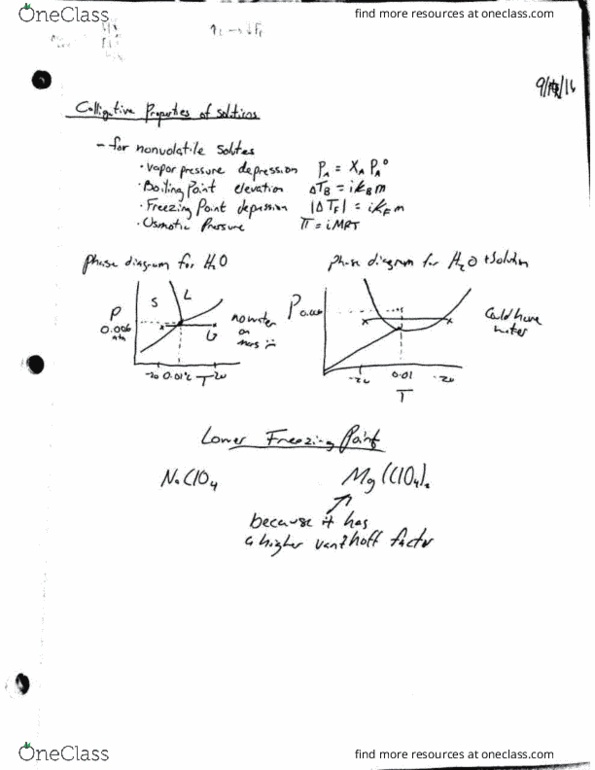 OneClass
find more resources at oneclass.com
Colligative Properties of Solutions
- for nonvolatile solutes
· Vapor pressure depression P_A = X_A P_A°
· Boiling Point elevation ΔT_B = i k_B m
· Freezing Point depression |ΔT_F| = i k_F m
· Osmotic Pressure π = iMRT
phase diagram for H₂O
phase diagram for H₂O + Solution
P
S
L
G
0.006
atm
no water
on
mars :(
-20 0.01°C T 20
P 0.006
Could have
water
-20 0.01 -20
T
Lower Freezing Point
NaClO₄
Mg(ClO₄)₂
because it has
a higher vant hoff factor
OneClass
find more resources at oneclass.com